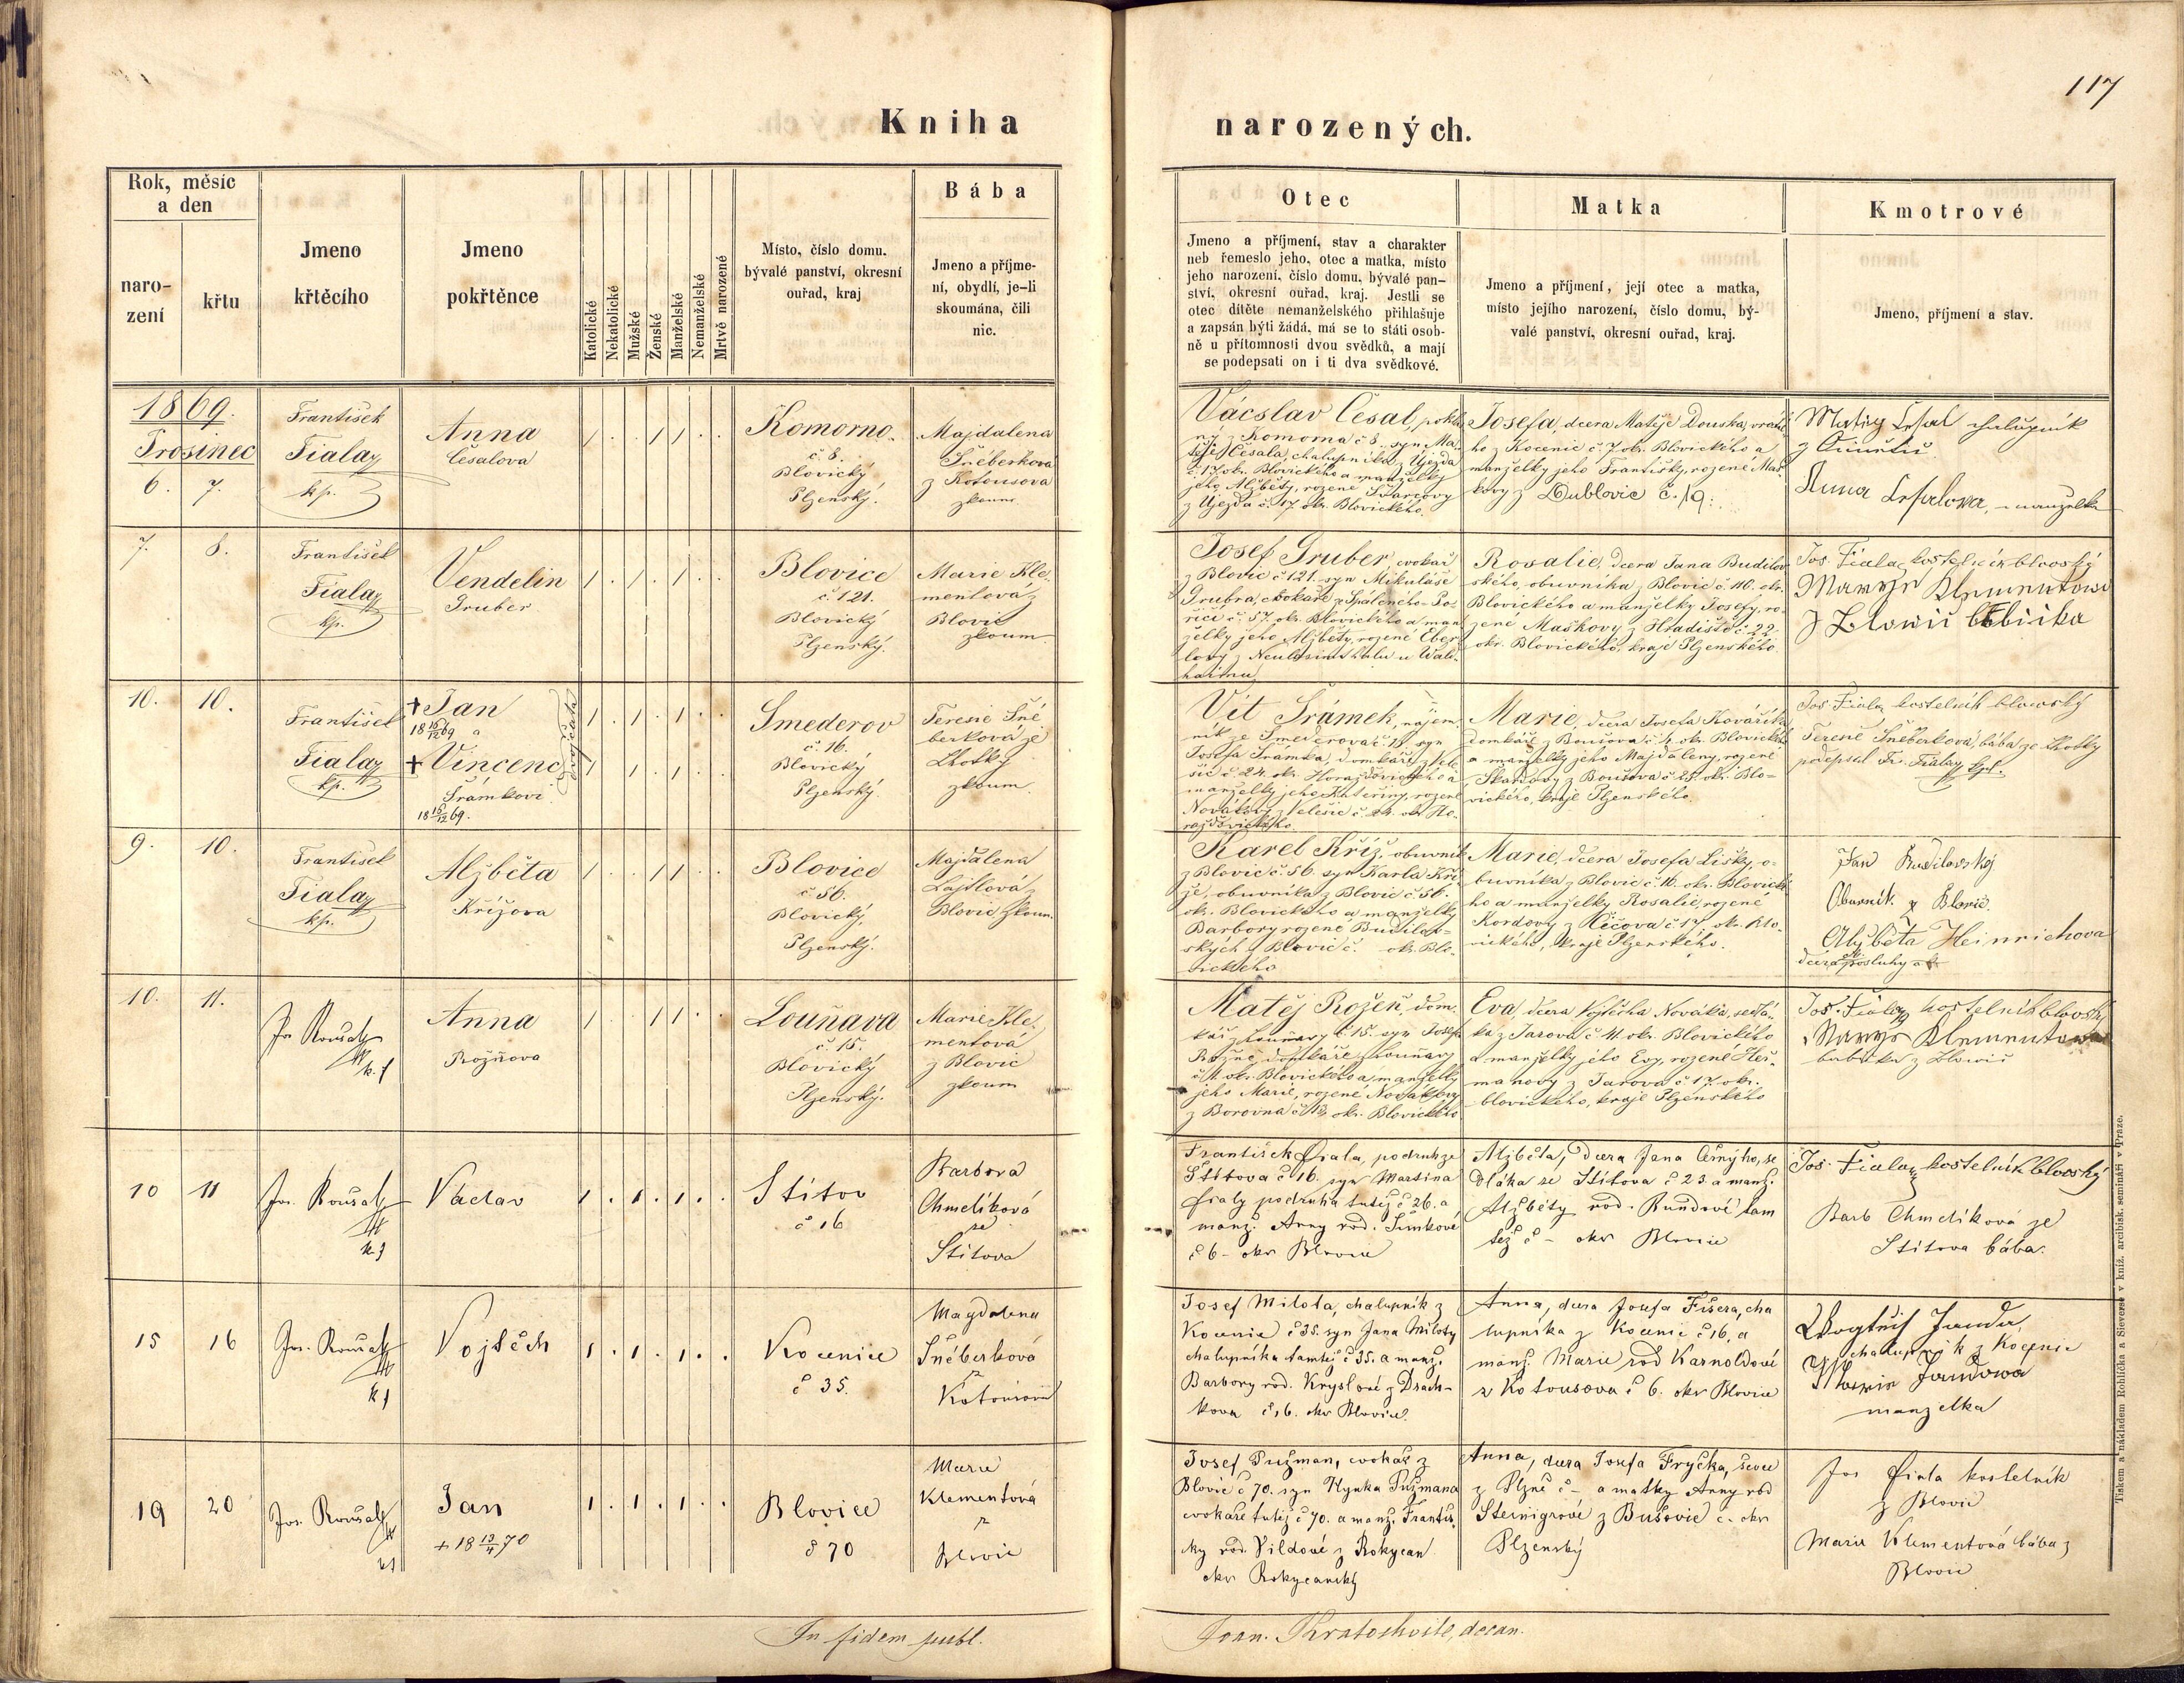 117
Kniha
narozených.
Rok, měsíc
a den
naro-
zení
křtu
Jmeno
křtěcího
Jmeno
pokřtěnce
Katolické
Nekatolické
Mužské
Ženské
Manželské
Nemanželské
Mrtvě narozené
Místo, číslo domu.
bývalé panství, okresní
ouřad, kraj
Bába
Jmeno a příjme-
ní, obydlí, je-li
skoumána, čili
nic.
Otec
Jmeno a příjmení, stav a charakter
neb řemeslo jeho, otec a matka, místo
jeho narození, číslo domu, bývalé pan-
ství, okresní ouřad, kraj. Jestli se
otec dítěte nemanželského přihlašuje
a zapsán býti žádá, má se to státi osob-
ně u přítomnosti dvou svědků, a mají
se podepsati on i ti dva svědkové.
Matka
Jmeno a příjmení, její otec a matka,
místo jejího narození, číslo domu, bý-
valé panství, okresní ouřad, kraj.
Kmotrové
Jmeno, příjmení a stav.
1869.
Prosinec
6. 7.
František
Fiala
kp.
Anna
Česalova
Komorno.
č. 8.
Blovický
Plzenský.
Majdalena
Šnéberková
z Kotousova
zkoum.
Vácslav Česal,
z Komorna č 8. syn Ma-
těje Česala, chalupníka z Újezda
č. 17 okr. Blovického a manželky
jeho Alžběty, rozené Švarcovy
z Újezda č. 17. okr. Blovického.
Josefa, dcera Matěje Douska,
ho z Kocenic č. 7 okr. Blovického a
manželky jeho Františky, rozené Maš-
kovy z Dublovic č. 19.
chalupník
Anna manželka
7. 8.
František
Fiala
kp.
Vendelin
Gruber
Blovice
č. 121.
Blovický
Plzenský.
Marie Kle-
mentová z
Blovic
zkoum.
Josef Gruber, cvokař
z Blovic č 121. syn Mikuláše
Grubra, cvokaře z Spáleného-Po-
říčí č. 57. okr. Blovického a man-
želky jeho Alžběty, rozené Eber-
lovy z
Rosalie, dcera Jana Budilov-
ského, obuvníka z Blovic č. 110. okr.
Blovického a manželky Josefy, ro-
zené Maškovy z Hradiště č 22.
okr. Blovického, kraje Plzenského.
Jos. Fiala kostelník blovský
Marye Klementowa
z Blowic
10. 10.
František
Fiala
kp.
+ Jan
18 15/12 69 a
+ Vincenc
Šrámkovi
18 16/12 69.
dvojčata
Smederov
č. 16.
Blovický
Plzenský.
Teresie Šné-
berková ze
Lhotky
zkoum.
Vít Šrámek, nájem-
ník ze Smederova č. 15. syn
Josefa Šrámka, domkáře z Vele-
šic č. 24. okr. Horažďovického a
manželky jeho Kateřiny, rozené
Novákovy z Velešic č. 24. okr. Ho-
ražďovického.
Marie, dcera Josefa Kováříka
domkáře z Boušova č. okr. Blovického
a manželky jeho Majdaleny, rozené
z Boušova č 25. okr. Blo-
vického, kraje Plzenského.
Jos Fiala kostelník blowský
Teresie Šnéberková, bába ze Lhotky
podepsal Fr. Fiala kpl.
9. 10.
František
Fiala
kp.
Alžběta
Křížova
Blovice
č 56.
Blovický,
Plzenský.
Majdalena
Lajtlová z
Blovic zkoum.
Karel Kříž, obuvník
z Blovic č. 56. syn Karla Kří-
že, obuvníka z Blovic č 56.
okr. Blovického a manželky
Barbory rozené Budilov-
ských z Blovic č. okr. Blo-
vického
Marie, dcera Josefa Lišky, o-
buvníka z Blovic č. 16. okr. Blovické-
ho a manželky Rosalie, rozené
Kordovy z Ličova č 17. okr. Blo-
vického, kraje Plzenského.
Jan Budilovský
Obuvník z Blovic.
Alžběta Heinrichova
dcera posluhy
10. 11.
Jos Roušal
k. f
Anna
Rožňova
Louňava
č. 15.
Blovický
Plzenský.
Marie Kle-
mentová
z Blovic
zkoum
Matěj Rožeň, dom-
kář z Louňavy č 15. syn Josefa
Rožně, domkáře z Louňavy
č 11. okr. Blovického a manželky
jeho Marie, rozené Novákovy
z Borovna č 12, okr. Blovického
Eva, dcera Vojtěcha Nováka, sedlá-
ka z Jarova č 11. okr. Blovického
a manželky jeho Evy, rozené Heř-
manovy z Jarova č 17. okr.
blovického, kraje Plzenského
Jos. Fiala kostelník blovský
Marye Klementowa
babička z Blowic
10 11
Jos. Roušal
k. f
Václav
Štitov
č 16
Barbora
Chmelíková
ze
Štitova
František Fiala, podruh ze
Štitova č 16. syn Martina
Fialy podruha tutéž č 26. a
manž. Anny rod. Šimkové
č 6 - okr Blovice
Alžběta, dcera Jana Černýho, se
dláka ze Štítova č 23 a manž.
Alžběty rod. Bundové tam
též č - okr Blovice
Jos. Fiala kostelník blovský
Barb Chmelíková ze
Štitova bába.
15 16
Jos. Roušal
k f
Vojtěch
Kocenice
č 35.
Magdalena
Šnéberková
z
Kotousova
Josef Milota, chalupník z
Kocenic č 35. syn Jana Miloty
chalupníka tamtéž č 35. a manž.
Barbory rod. Kryslové z Drach-
kova č 16. okr Blovice.
Anna, dcera Josefa Fišera, cha
lupníka z Kocenic č 16, a
manž. Marie rod Karnoldové
z Kotousova č 6. okr Blovice
Wogtěch Janda,
chalupník z Kocenic
Marie Jandowa
manzelka
19 20
Jos. Roušal
k f
Jan
+ 18 13/4 70
Blovice
č 70
Marie
Klementová
z
Blovic
Josef Pužman, cvokář z
Blovic č 70. syn Hynka Pužmana
cvokaře tutéž č 70. a manž. Františ-
ky rod. Vildové z Rokycan
okr Rokycanský
Anna, dcera Josefa Fryčka, ševce
z Plzně č - a matky Anny rod
Steinigrové z Bušovic č - okr
Plzenský
Jos Fiala kostelník
z Blovic
Marie Klementová bába z
Blovic
In fidem publ.
Joan. Kratochvile, decan.
Tiskem a nákladem Rohlíčka a Sieverse v kníž. arcibisk. semináři v Praze.